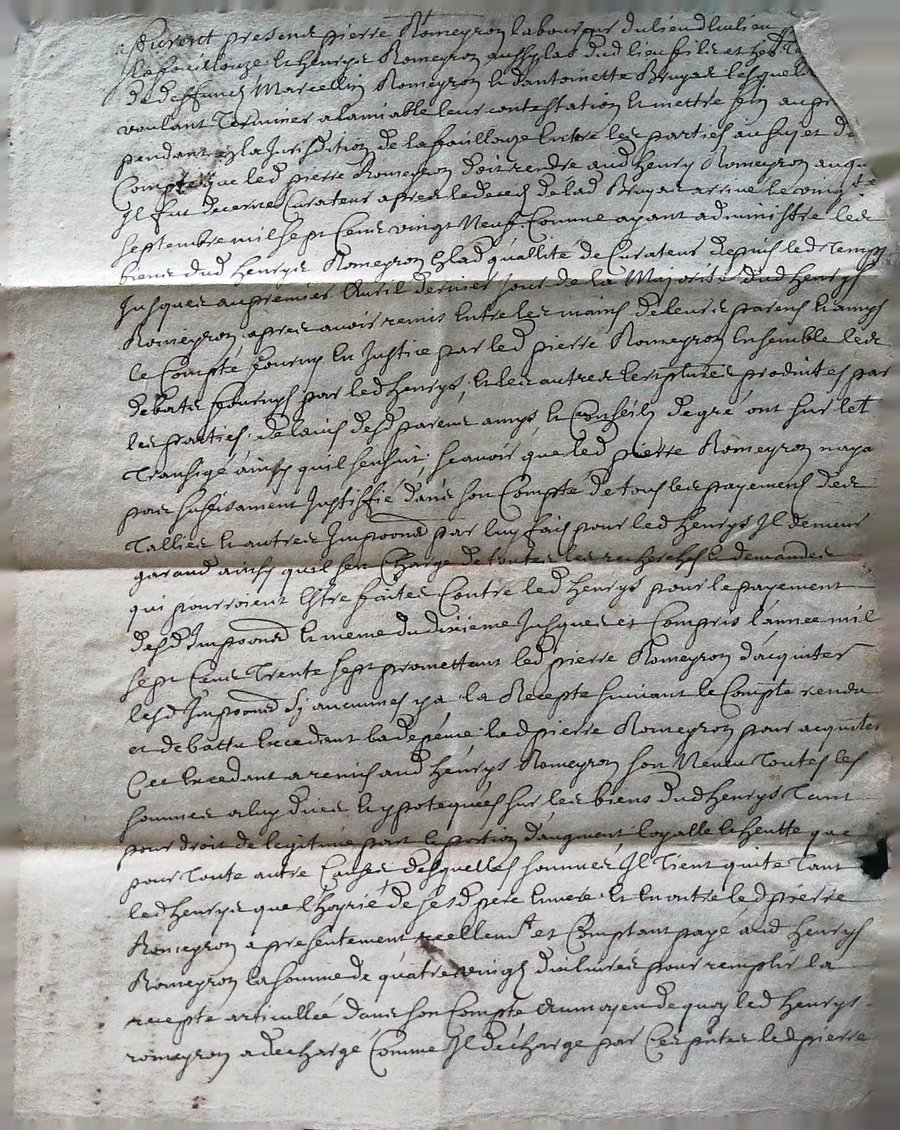 furent presens pierre Romeyron laboureur du lieu de
lafouillouze et henrys Romeyron aussy lab du d lieu fils et
de deffunctz Marcellin Romeyron et dantoinette Bruyas lesquels
voulant Terminer a lamiable leur contestation et mettre fin au
pendant en la Jurisdition de lafouillouze Entre les parties au sujet du
Compte que led pierre Romeyron doit rendre aud henry Romeyron auquel
Il fut decerné Curateur apres le deces de lad Bruyas arrivé le vingt
septembre mil sept Cens vingt Neuf Comme ayant administré les
biens dud henrys Romeyron En lad quallité de Curateur depuis led Temps
Jusques au premier Avril dernier Jour de la Majorité dud henrys
Romeyron apres avoir remis Entre les mains de leurs parens et amys
le Compte fourny En Justice par led pierre Romeyron Ensemble les
debats fournys par led henrys, et les autres Ecriptures produites par
les parties, de lavis desd parens amys, et Conseils de gré ont sur le t
Transigé ainsy quil sensuit, scavoir que led pierre Romeyron naya
pas sufisament Justiffié dans son Compte de tous les payemens des
Tallies et autres Impoons par luy fais pour led henrys Il demeure
garand ainsy quil sen Charge de toutes les recherches et demandes
qui pourroient Estre faites Contre led henrys pour le payement
desd Impoons et meme du dixieme Jusques et Compris lannée mil
sept Cens Trente sept promettant led pierre Romeyron dacquiter
lesd Impoons sy aucunes y a la Recepte suivant le Compte rendu
et debattu Excedant la depense led pierre Romeyron pour acquiter
Cet Excedant a remis aud henrys Romeyron son Neveu Toutes les
sommes a luy dues et ypotequées sur les biens dud henrys Tant
pour droit de legitime part et portion daugment que
pour Toute autre Cause desquelles sommes Il Tient quite Tant
led henrys que lhoyrie de sesd pere Et en outre led pierre
Romeyron a presentement reellemt et Comptant payé aud henrys
Romeyron la somme de quatre vingt dix livres pour remplir la
recepte articullée dans son Compte Au moyen de quoy led henrys
romeyron a decharge Comme Il decharge par Ces pntes led pierre